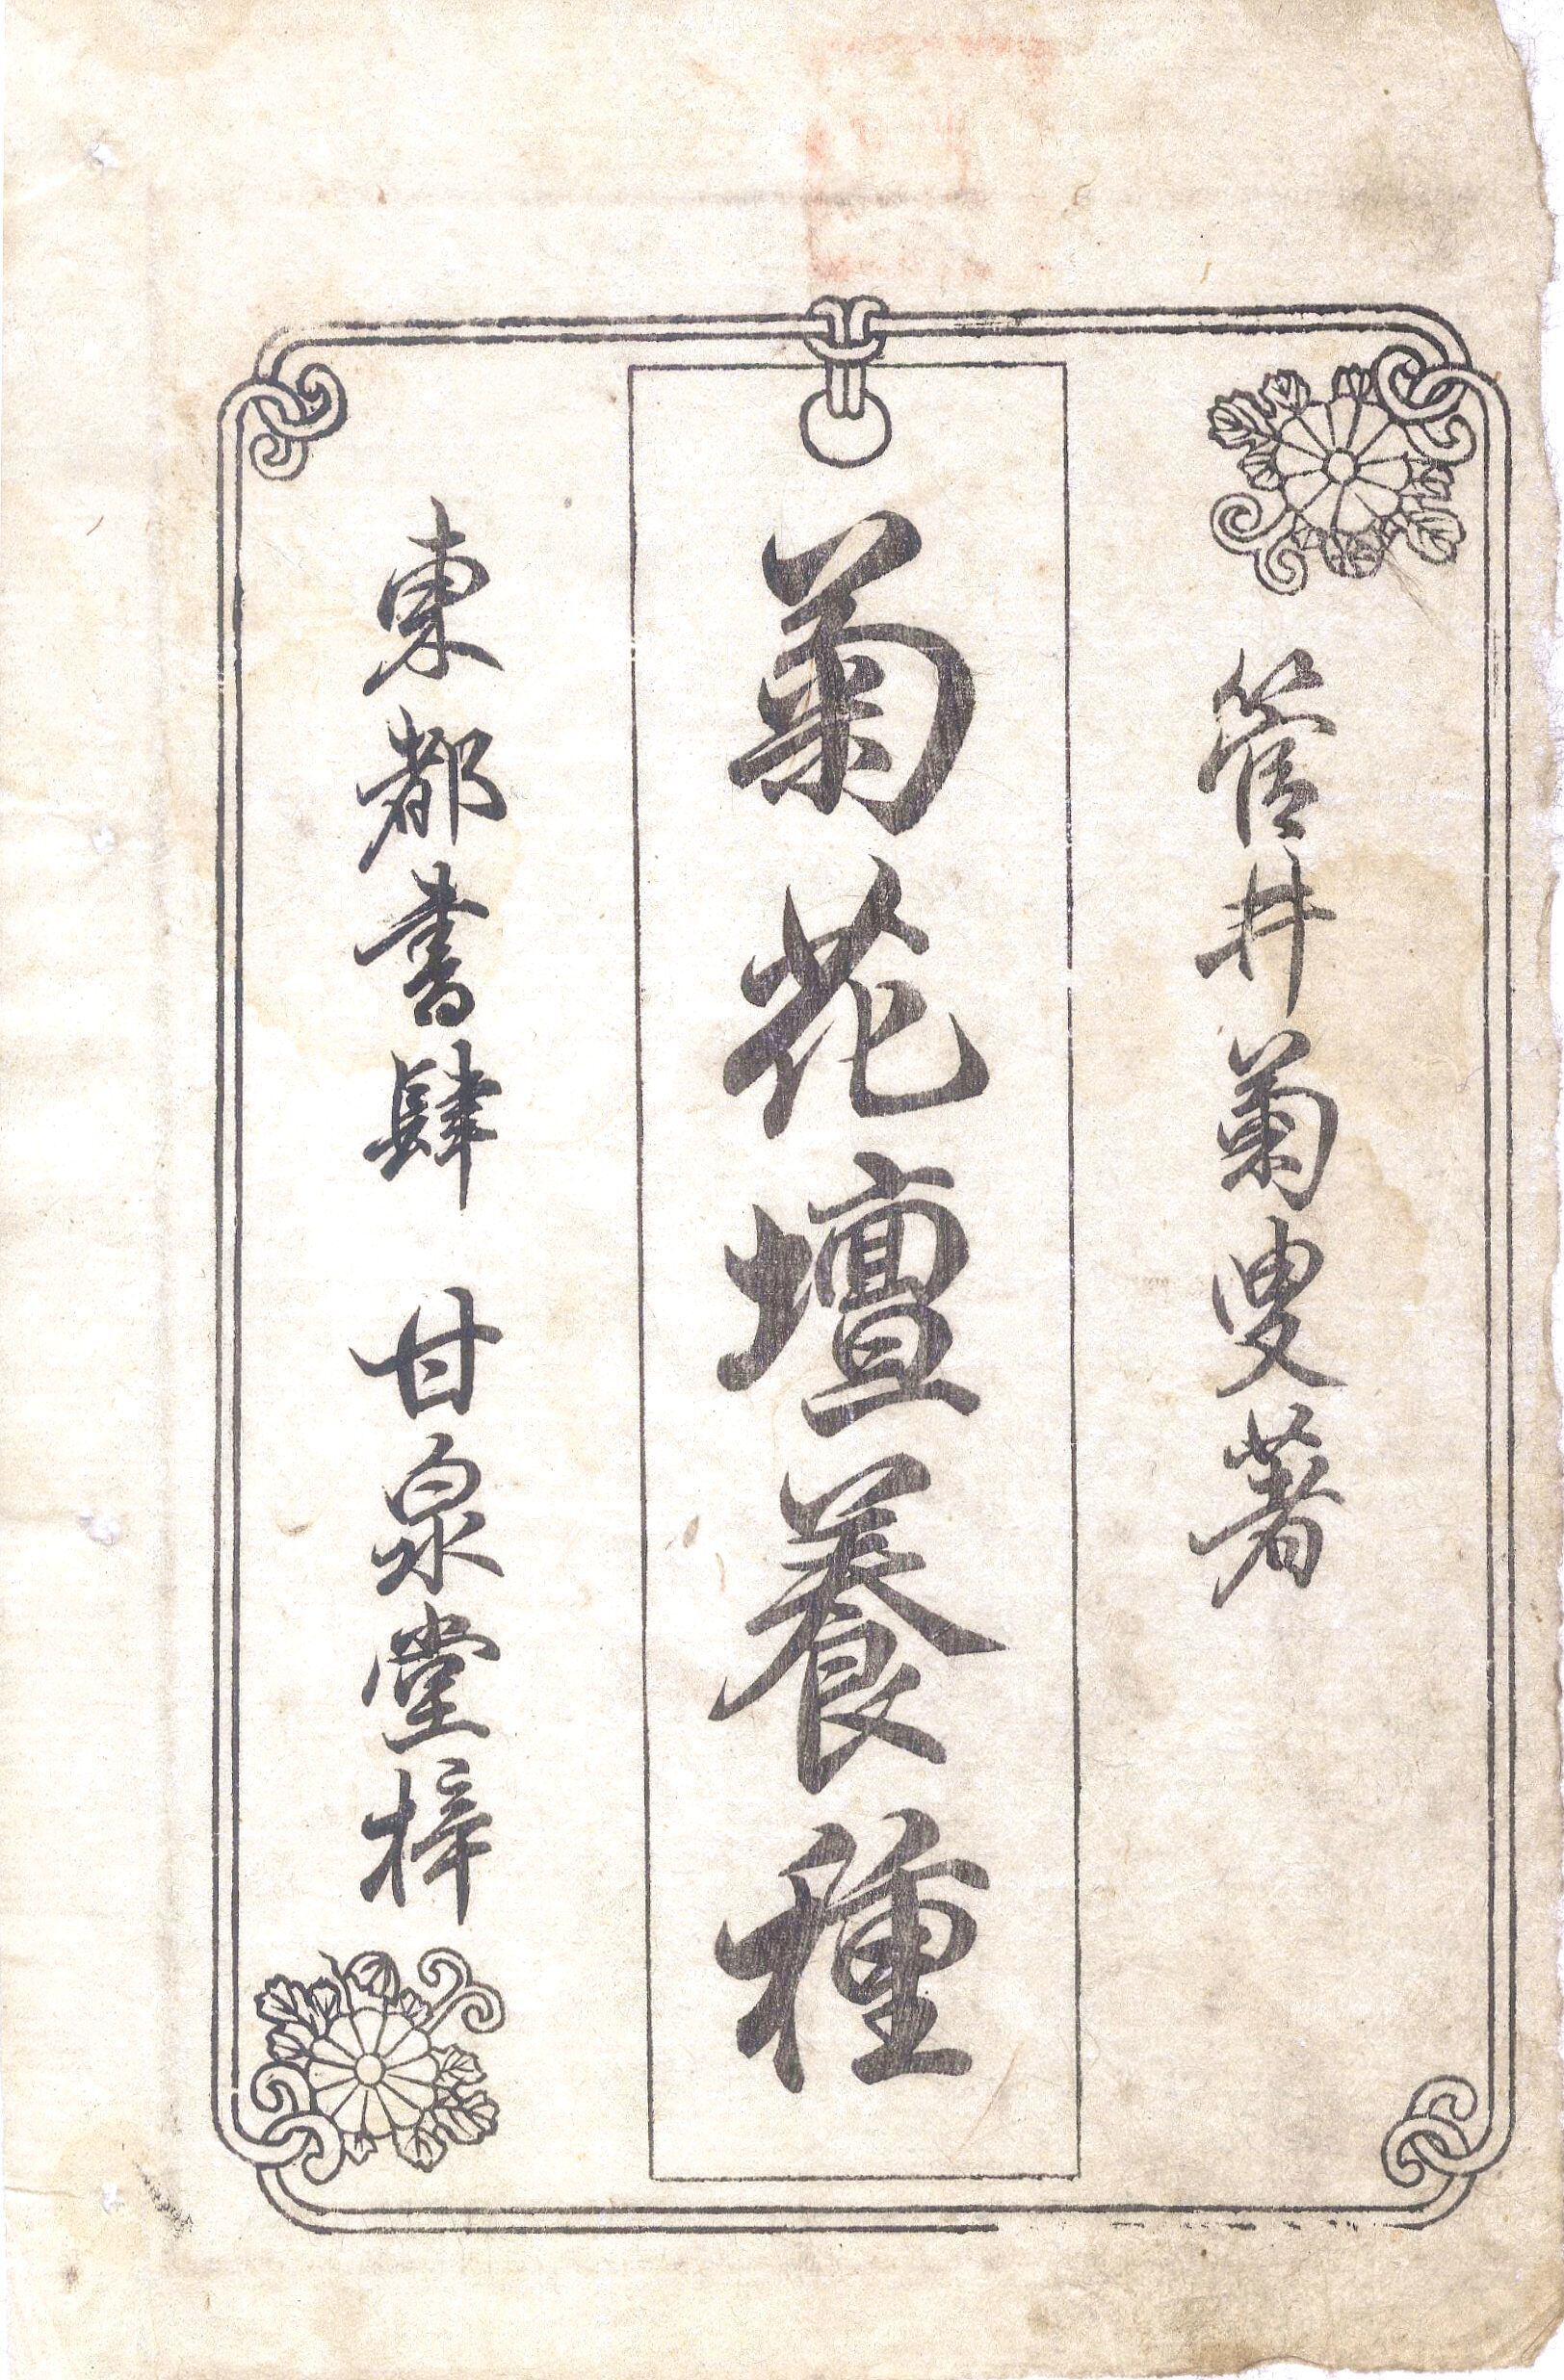 管井菊叟著
菊花壇養種
東都書肆 甘泉堂梓